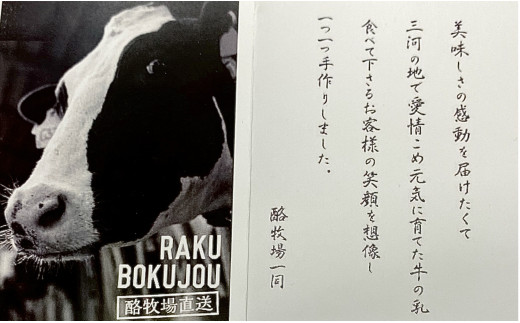 RAKU
BOKUJOU
酪牧場直送
美味しさの感動を届けたくて
三河の地で愛情こめ元気に育てた牛の乳
食べて下さるお客様の笑顔を想像し
一つ一つ手作りしました。
酪牧場一同